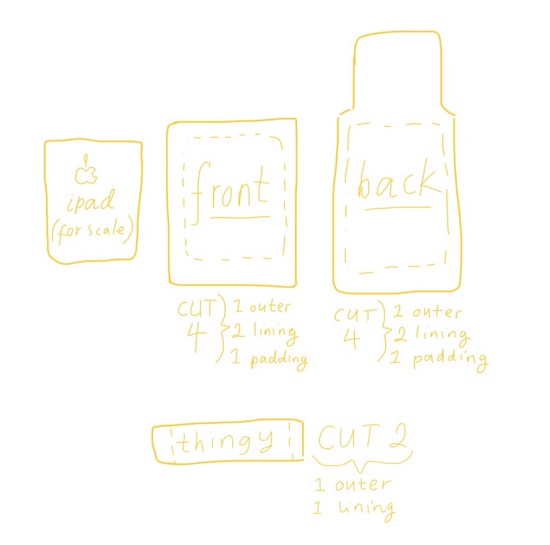 ipad
(for scale)
front
back
CUT 4 } 1 outer
2 lining
1 padding
CUT 4 } 1 outer
2 lining
1 padding
thingy
CUT 2
1 outer
1 lining